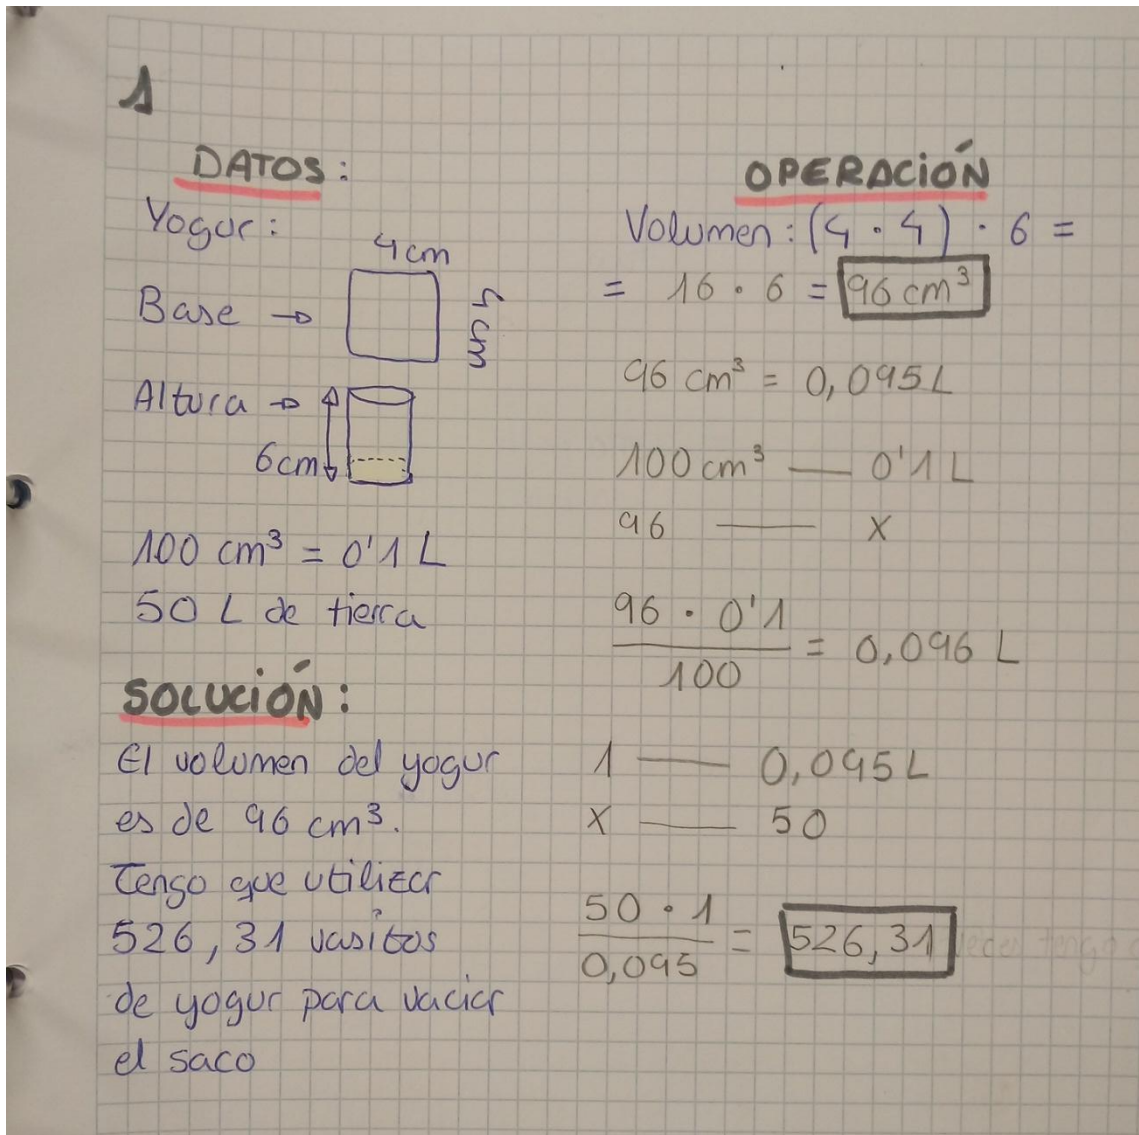 1
DATOS:
Yogur:
4cm
Base →
4cm
Altura →
6cm
100 cm³ = 0'1 L
50 L de tierra
SOLUCIÓN:
El volumen del yogur
es de 96 cm³.
Tengo que utilizar
526,31 vasitos
de yogur para vaciar
el saco
OPERACIÓN
Volumen: (4 · 4) · 6 =
= 16 · 6 = 96 cm³
96 cm³ = 0,095L
100 cm³ — 0'1 L
96 — x
96 · 0'1
100
= 0,096 L
1 — 0,095L
x — 50
50 · 1
0,095
= 526,31